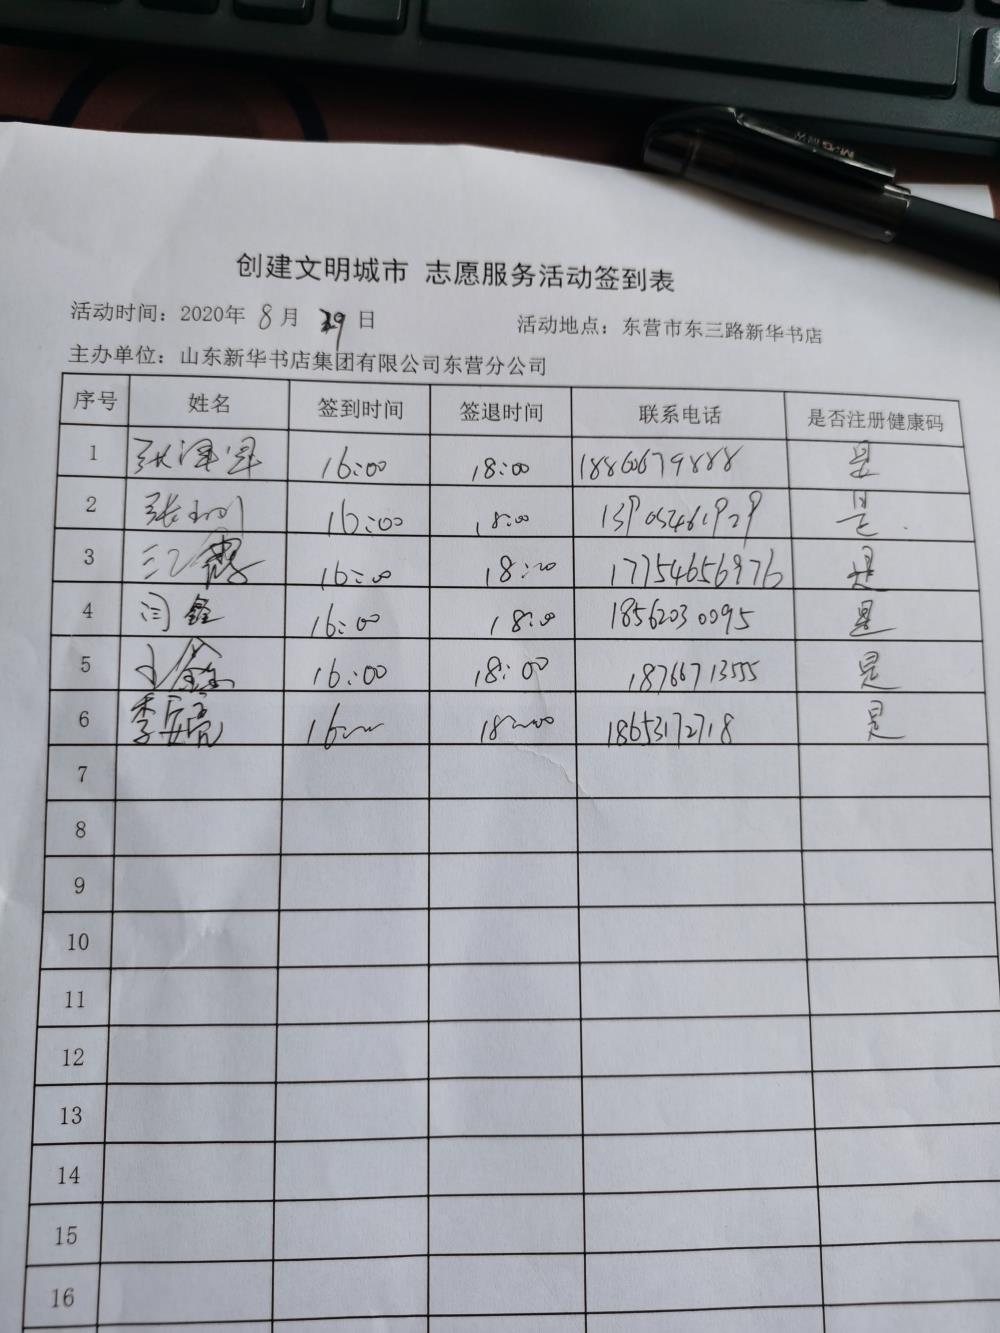 创建文明城市 志愿服务活动签到表
活动时间：2020年 8月 29日 活动地点：东营市东三路新华书店
主办单位：山东新华书店集团有限公司东营分公司
序号 姓名 签到时间 签退时间 联系电话 是否注册健康码
1 16:00 18:00 18860679888 是
2 16:00 18:00 13905461929 是
3 16:00 18:00 17754656976 是
4 闫鑫 16:00 18:00 18562030095 是
5 16:00 18:00 18766713555 是
6 16:00 18:00 18653172718 是
7
8
9
10
11
12
13
14
15
16
M&G